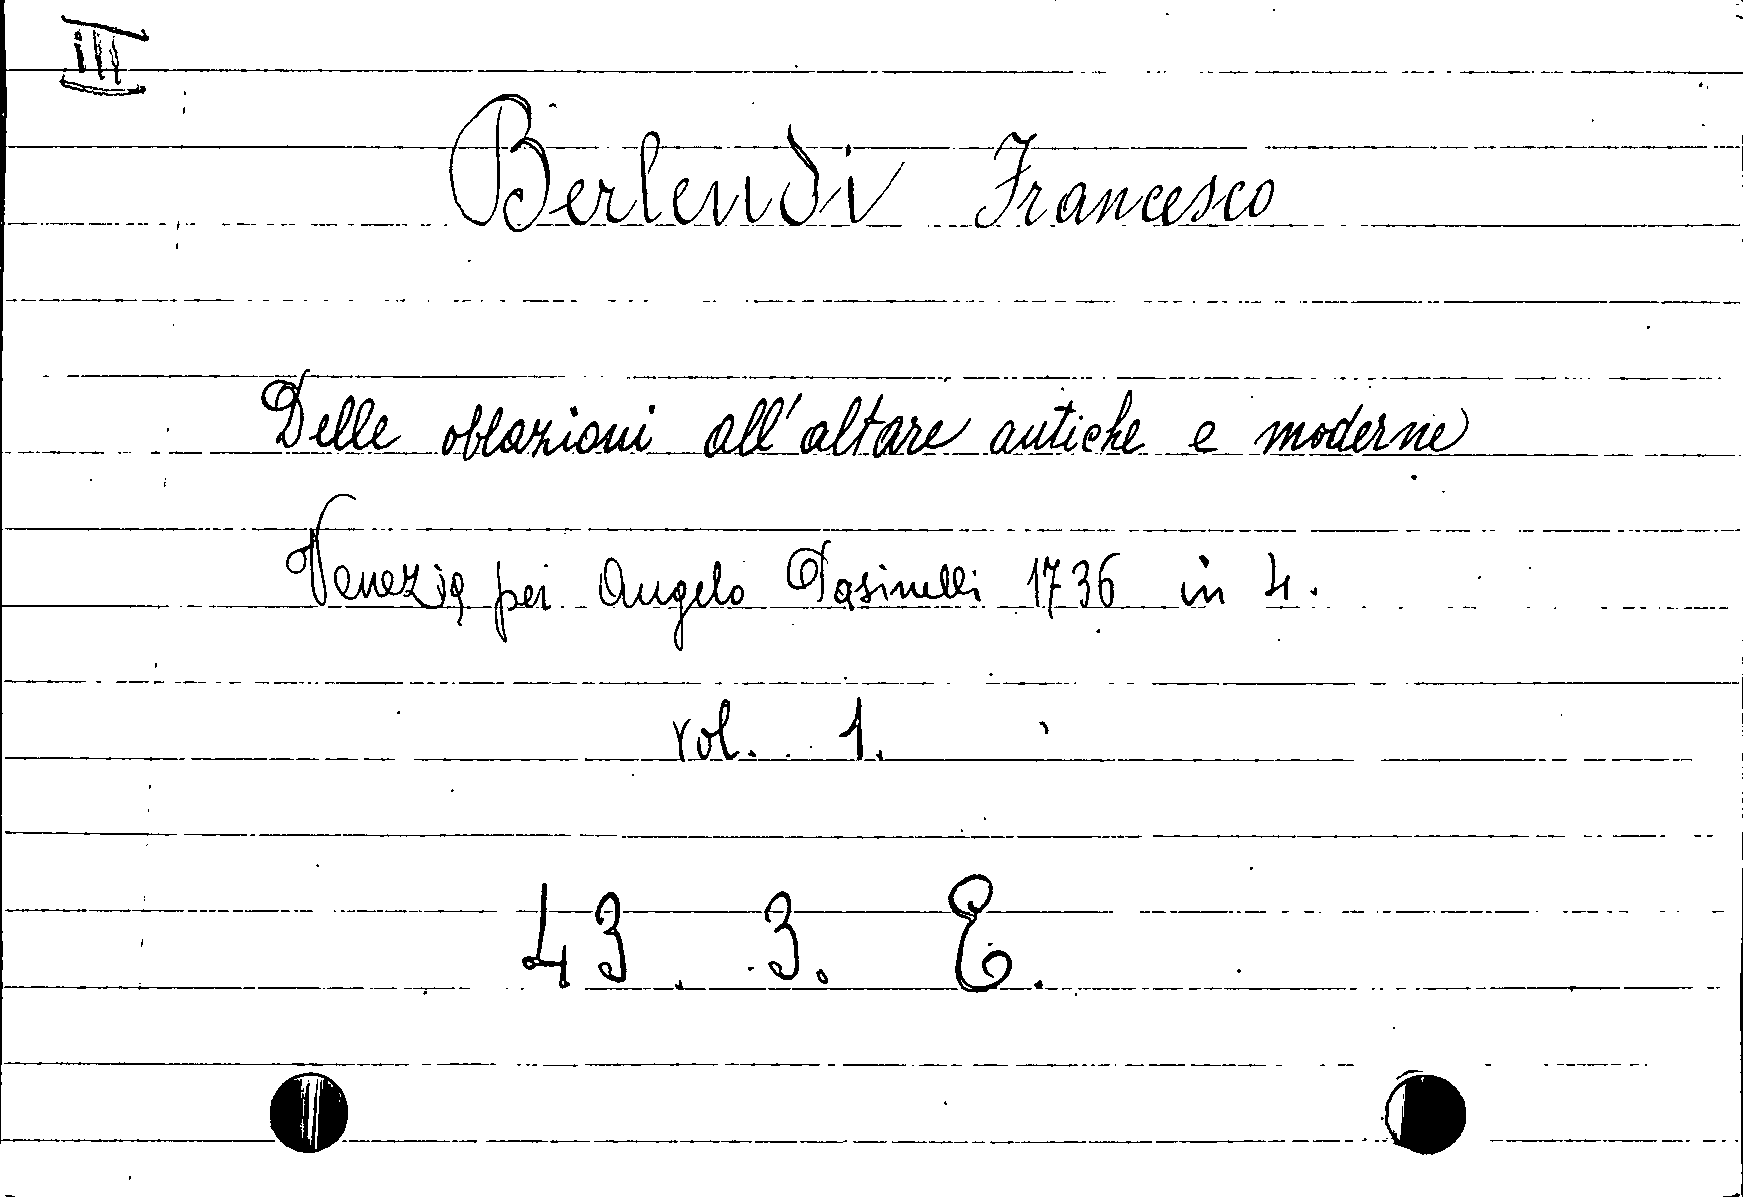 III
Berlendi Francesco
Delle oblazioni all'altare antiche e moderne
Venezia per Angelo Pasinelli 1736 in 4.
vol. 1.
43. 3. E.